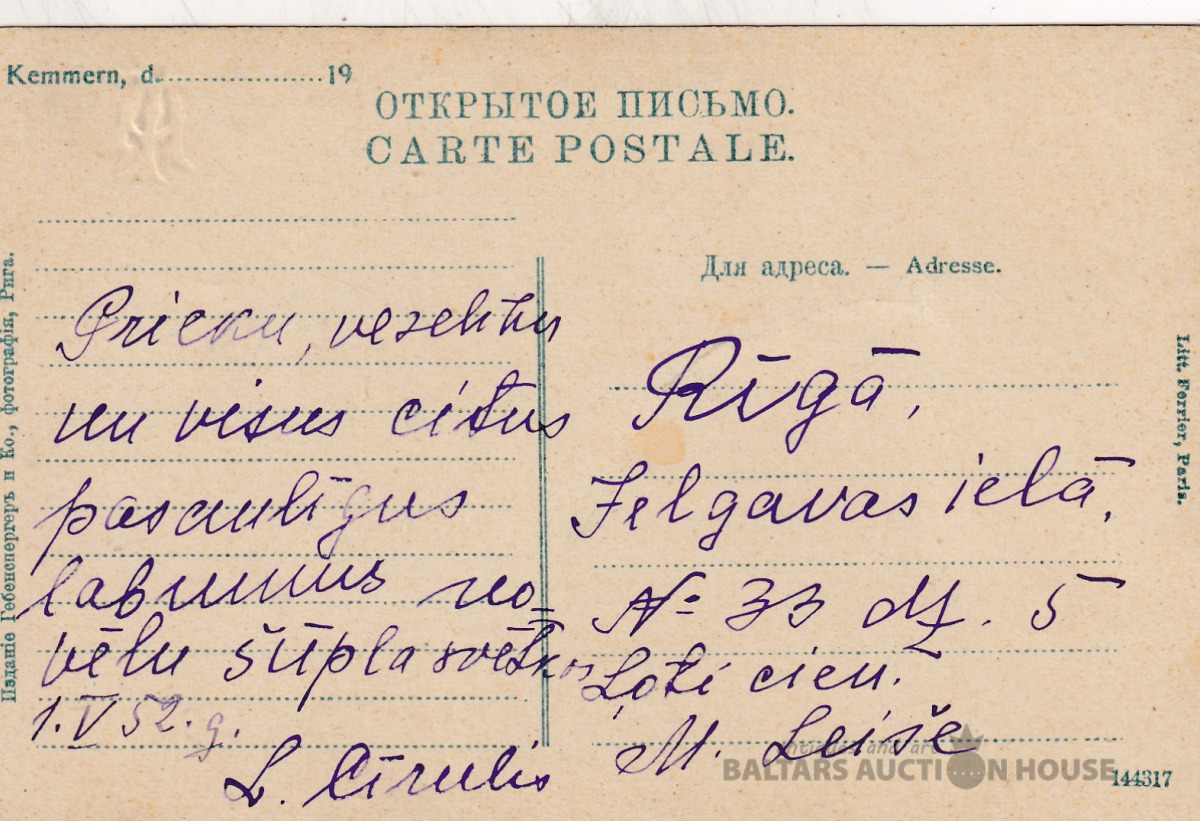 Kemmern, d. 19
ОТКРЫТОЕ ПИСЬМО.
CARTE POSTALE.
Для адреса. — Adresse.
Prieku, veselību
un visus citus
pasaulīgus
labumus no-
vēlu šūpļa svētkos
1.V 52. g.
L. Cīrulis
Rīgā,
Jelgavas ielā,
№ 33 dz. 5
Ļoti cien.
M. Leiše
Изданіе Гебенспергеръ и Ко., фотографія, Рига.
Litt. Ferrier, Paris.
antiques and art
BALTARS AUCTION HOUSE
144317